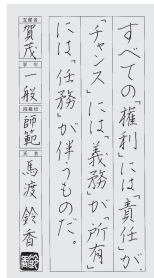 すべての「権利」には「責任」が、
「チャンス」には、「義務」が「所有」
には「任務」が伴うものだ。
支部名
賀茂
学年
一般
段級位
師範
氏名
馬渡鈴香